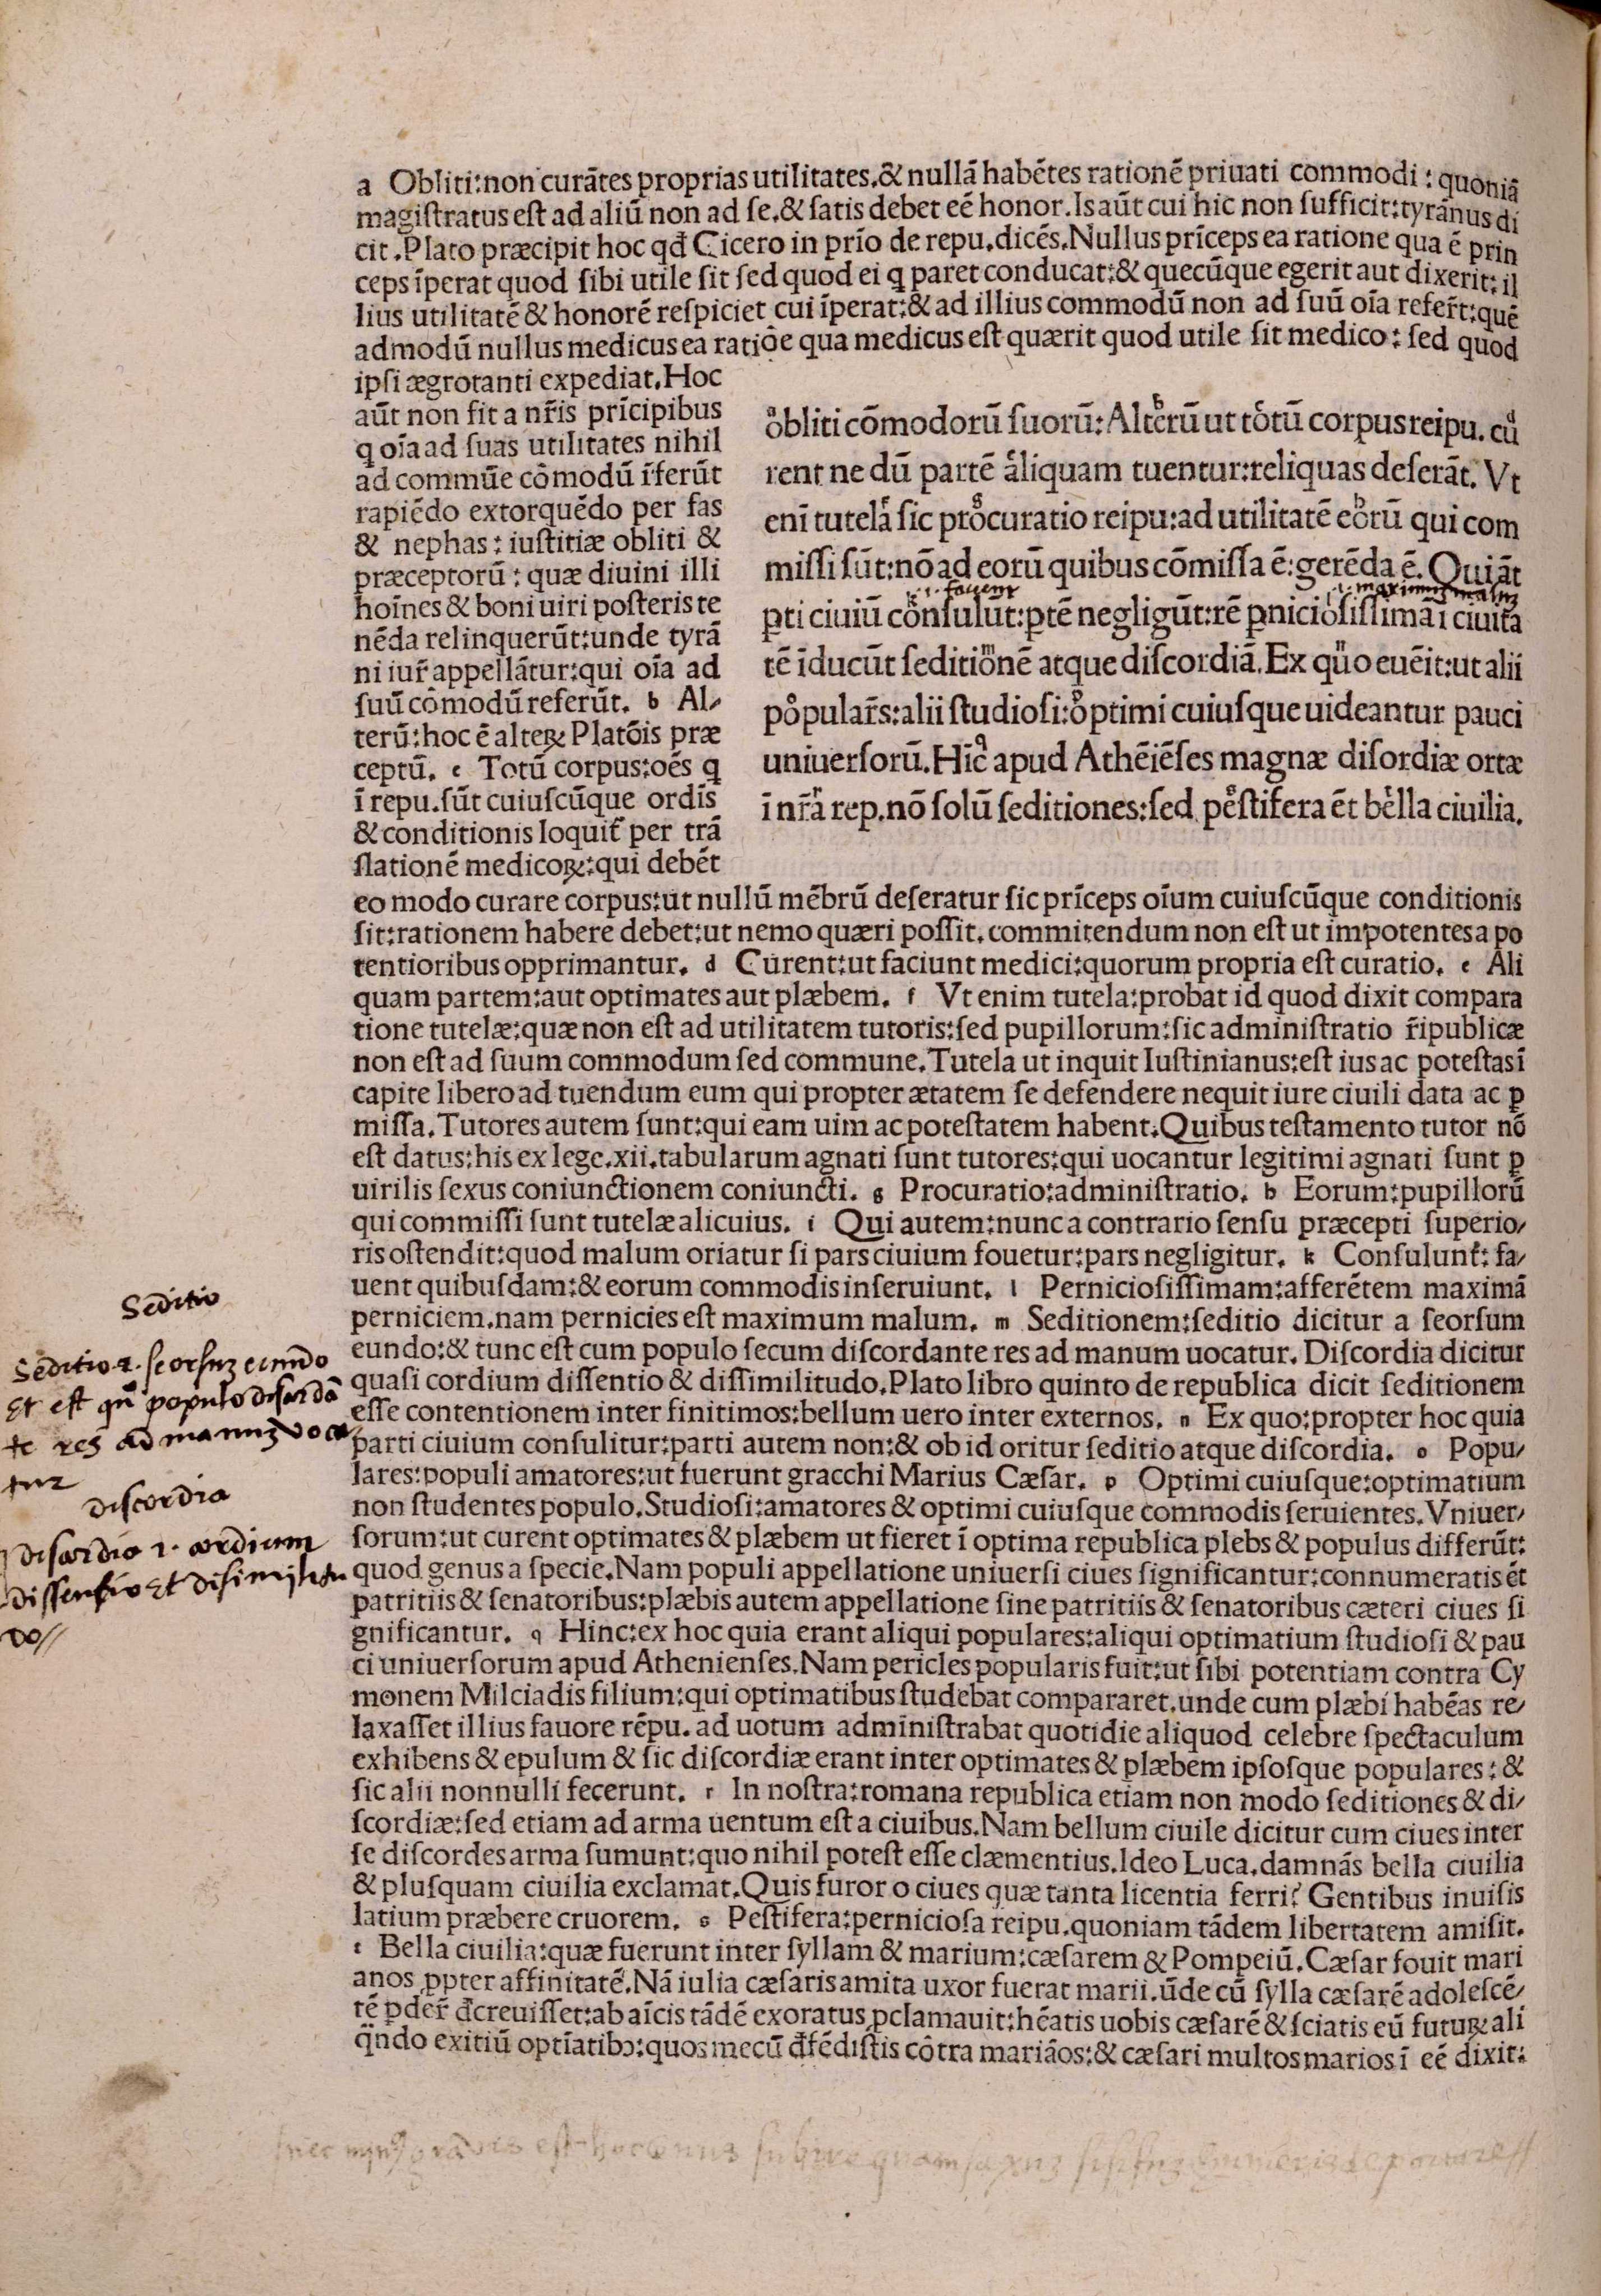 a Obliti:non curātes proprias utilitates.& nullā habētes rationē priuati commodi : quoniā
magiſtratus eſt ad aliū non ad ſe.& ſatis debet eē honor.Is aūt cui hic non ſufficit:tyrānus di
cit.Plato præcipit hoc qđ Cicero in prīo de repu.dicēs.Nullus prīceps ea ratione qua ē prin
ceps īperat quod ſibi utile ſit ſed quod ei q paret conducat:& quecūque egerit aut dixerit:il
lius utilitatē & honorē reſpiciet cui īperat:& ad illius commodū non ad ſuū oīa refer̄t:quē
admodū nullus medicus ea ratiōe qua medicus eſt quærit quod utile ſit medico : ſed quod
ipſi ægrotanti expediat.Hoc
aūt non fit a nr̄is prīcipibus
q oīa ad ſuas utilitates nihil
ad commūe cōmodū īferūt
rapiēdo extorquēdo per fas
& nephas : iuſtitiæ obliti &
præceptorū : quæ diuini illi
hoīnes & boni uiri poſteris te
nēda relinquerūt:unde tyrā
ni iur̄ appellātur:qui oīa ad
ſuū cōmodū referūt. b Al-
terū:hoc ē alteꝝ Platōis præ
ceptū. c Totū corpus:oēs q
ī repu.ſūt cuiuſcūque ordīs
& conditionis loquit̄ per trā
ſlationē medicoꝝ:qui debēt
obliti cōmodorū ſuorū:Alterū ut totū corpus reipu. cu
rent ne dū partē aliquam tuentur:reliquas deſerāt. Vt
enī tutela ſic procuratio reipu:ad utilitatē eorū qui com
miſſi ſūt:nō ad eorū quibus cōmiſſa ē:gerēda ē. Qui āt
.i. fauent
.i. maximum malum
ꝑti ciuiū conſulūt:ꝑtē negligūt:rē ꝑnicioſiſſimā ī ciuita
tē īducūt ſeditionē atque diſcordiā.Ex quo euēit:ut alii
popular̄s:alii ſtudioſi:optimi cuiuſque uideantur pauci
uniuerſorū.Hīc apud Athēiēſes magnæ diſordiæ ortæ
ī nr̄a rep.nō ſolū ſeditiones:ſed peſtifera ēt bella ciuilia.
eo modo curare corpus:ut nullū mēbrū deſeratur ſic prīceps oīum cuiuſcūque conditionis
ſit:rationem habere debet:ut nemo quæri poſſit.commitendum non eſt ut impotentes a po
tentioribus opprimantur. d Curent:ut faciunt medici:quorum propria eſt curatio. e Ali
quam partem:aut optimates aut plæbem. f Vt enim tutela:probat id quod dixit compara
tione tutelæ:quæ non eſt ad utilitatem tutoris:ſed pupillorum:ſic adminiſtratio r̄ipublicæ
non eſt ad ſuum commodum ſed commune.Tutela ut inquit Iuſtinianus:eſt ius ac poteſtas ī
capite libero ad tuendum eum qui propter ætatem ſe defendere nequit iure ciuili data ac ꝑ
miſſa.Tutores autem ſunt:qui eam uim ac poteſtatem habent.Quibus teſtamento tutor nō
eſt datus:his ex lege.xii.tabularum agnati ſunt tutores:qui uocantur legitimi agnati ſunt ꝑ
uirilis ſexus coniunctionem coniuncti. g Procuratio:adminiſtratio. h Eorum:pupillorū
qui commiſſi ſunt tutelæ alicuius. i Qui autem:nunc a contrario ſenſu præcepti ſuperio-
ris oſtendit:quod malum oriatur ſi pars ciuium fouetur:pars negligitur. k Conſulunt̄: fa-
uent quibuſdam:& eorum commodis inſeruiunt. l Pernicioſiſſimam:afferētem maximā
perniciem.nam pernicies eſt maximum malum. m Seditionem:ſeditio dicitur a ſeorſum
eundo:& tunc eſt cum populo ſecum diſcordante res ad manum uocatur. Diſcordia dicitur
quaſi cordium diſſentio & diſſimilitudo.Plato libro quinto de republica dicit ſeditionem
eſſe contentionem inter finitimos:bellum uero inter externos. n Ex quo:propter hoc quia
parti ciuium conſulitur:parti autem non:& ob id oritur ſeditio atque diſcordia. o Popu-
lares:populi amatores:ut fuerunt gracchi Marius Cæſar. p Optimi cuiuſque:optimatium
non ſtudentes populo.Studioſi:amatores & optimi cuiuſque commodis ſeruientes.Vniuer-
ſorum:ut curent optimates & plæbem ut fieret ī optima republica plebs & populus differūt:
quod genus a ſpecie.Nam populi appellatione uniuerſi ciues ſignificantur:connumeratis ēt
patritiis & ſenatoribus:plæbis autem appellatione ſine patritiis & ſenatoribus cæteri ciues ſi
gnificantur. q Hinc:ex hoc quia erant aliqui populares:aliqui optimatium ſtudioſi & pau
ci uniuerſorum apud Athenienſes.Nam pericles popularis fuit:ut ſibi potentiam contra Cy
monem Milciadis filium:qui optimatibus ſtudebat compararet.unde cum plæbi habēas re-
laxaſſet illius fauore rēpu. ad uotum adminiſtrabat quotidie aliquod celebre ſpectaculum
exhibens & epulum & ſic diſcordiæ erant inter optimates & plæbem ipſoſque populares : &
ſic alii nonnulli fecerunt. r In noſtra:romana republica etiam non modo ſeditiones & di-
ſcordiæ:ſed etiam ad arma uentum eſt a ciuibus.Nam bellum ciuile dicitur cum ciues inter
ſe diſcordes arma ſumunt:quo nihil poteſt eſſe clæmentius.Ideo Luca.damnās bella ciuilia
& pluſquam ciuilia exclamat.Quis furor o ciues quæ tanta licentia ferri? Gentibus inuiſis
latium præbere cruorem. s Peſtifera:pernicioſa reipu.quoniam tādem libertatem amiſit.
t Bella ciuilia:quæ fuerunt inter ſyllam & marium:cæſarem & Pompeiū.Cæſar fouit mari
anos ꝓpter affinitatē.Nā iulia cæſaris amita uxor fuerat marii.ūde cū ſylla cæſarē adoleſcē-
tē ꝑder̄ đcreuiſſet:ab aīcis tādē exoratus ꝓclamauit:hēatis uobis cæſarē & ſciatis eū futuꝝ ali
qn̄do exitiū optīatibꝰ:quos mecū đfēdiſtis cōtra mariāos:& cæſari multos marios ī eē dixit:
Seditio
Seditio .i. ſeorſuꝫ eundo
Et eſt qn̄ populo diſcordā
te res ad manuꝫ voca
tur
diſcordia
diſcordia .i. cordium
diſſenſio Et diſimilitu
do//